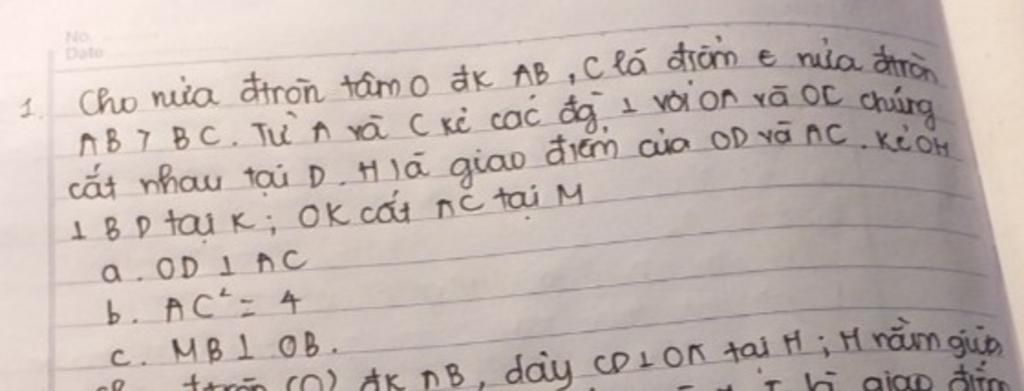 No.
Date
1. Cho nửa đtròn tâm O đk AB, C là điểm ∈ nửa đtròn
AB > BC. Từ A và C kẻ các đg ⊥ với OA và OC chúng
cắt nhau tại D. H là giao điểm của OD và AC. Kẻ OH
⊥ BD tại K; OK cắt AC tại M
a. OD ⊥ AC
b. AC² = 4
c. MB ⊥ OB.
đtròn (O) đk AB, dây CD ⊥ OA tại H; H nằm giữa
là giao điểm